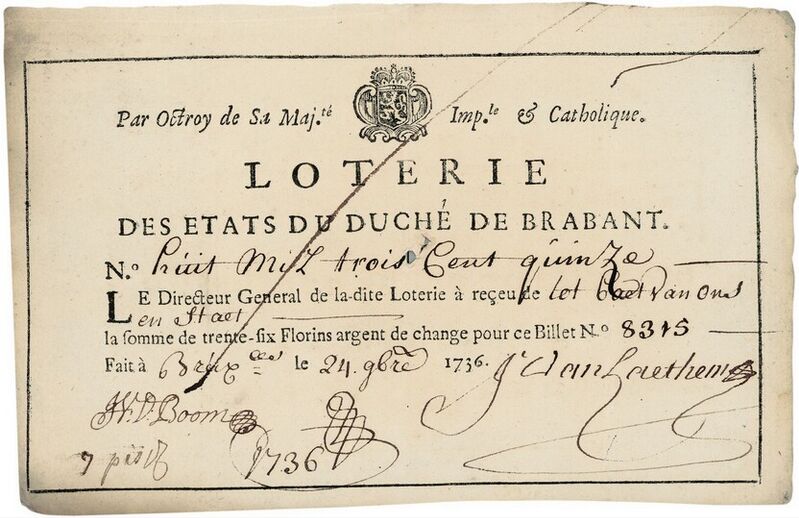 Par Octroy de Sa Maj.té Imp.le & Catholique.
LOTERIE
DES ETATS DU DUCHÉ DE BRABANT.
N.o huit Mil trois Cent quinze
LE Directeur General de la-dite Loterie à reçeu de lot
en Staet
la somme de trente-six Florins argent de change pour ce Billet N.o 8315
Fait à Bruxlles le 24 9bre 1736. J. Van Laethem
Boom
1736
7